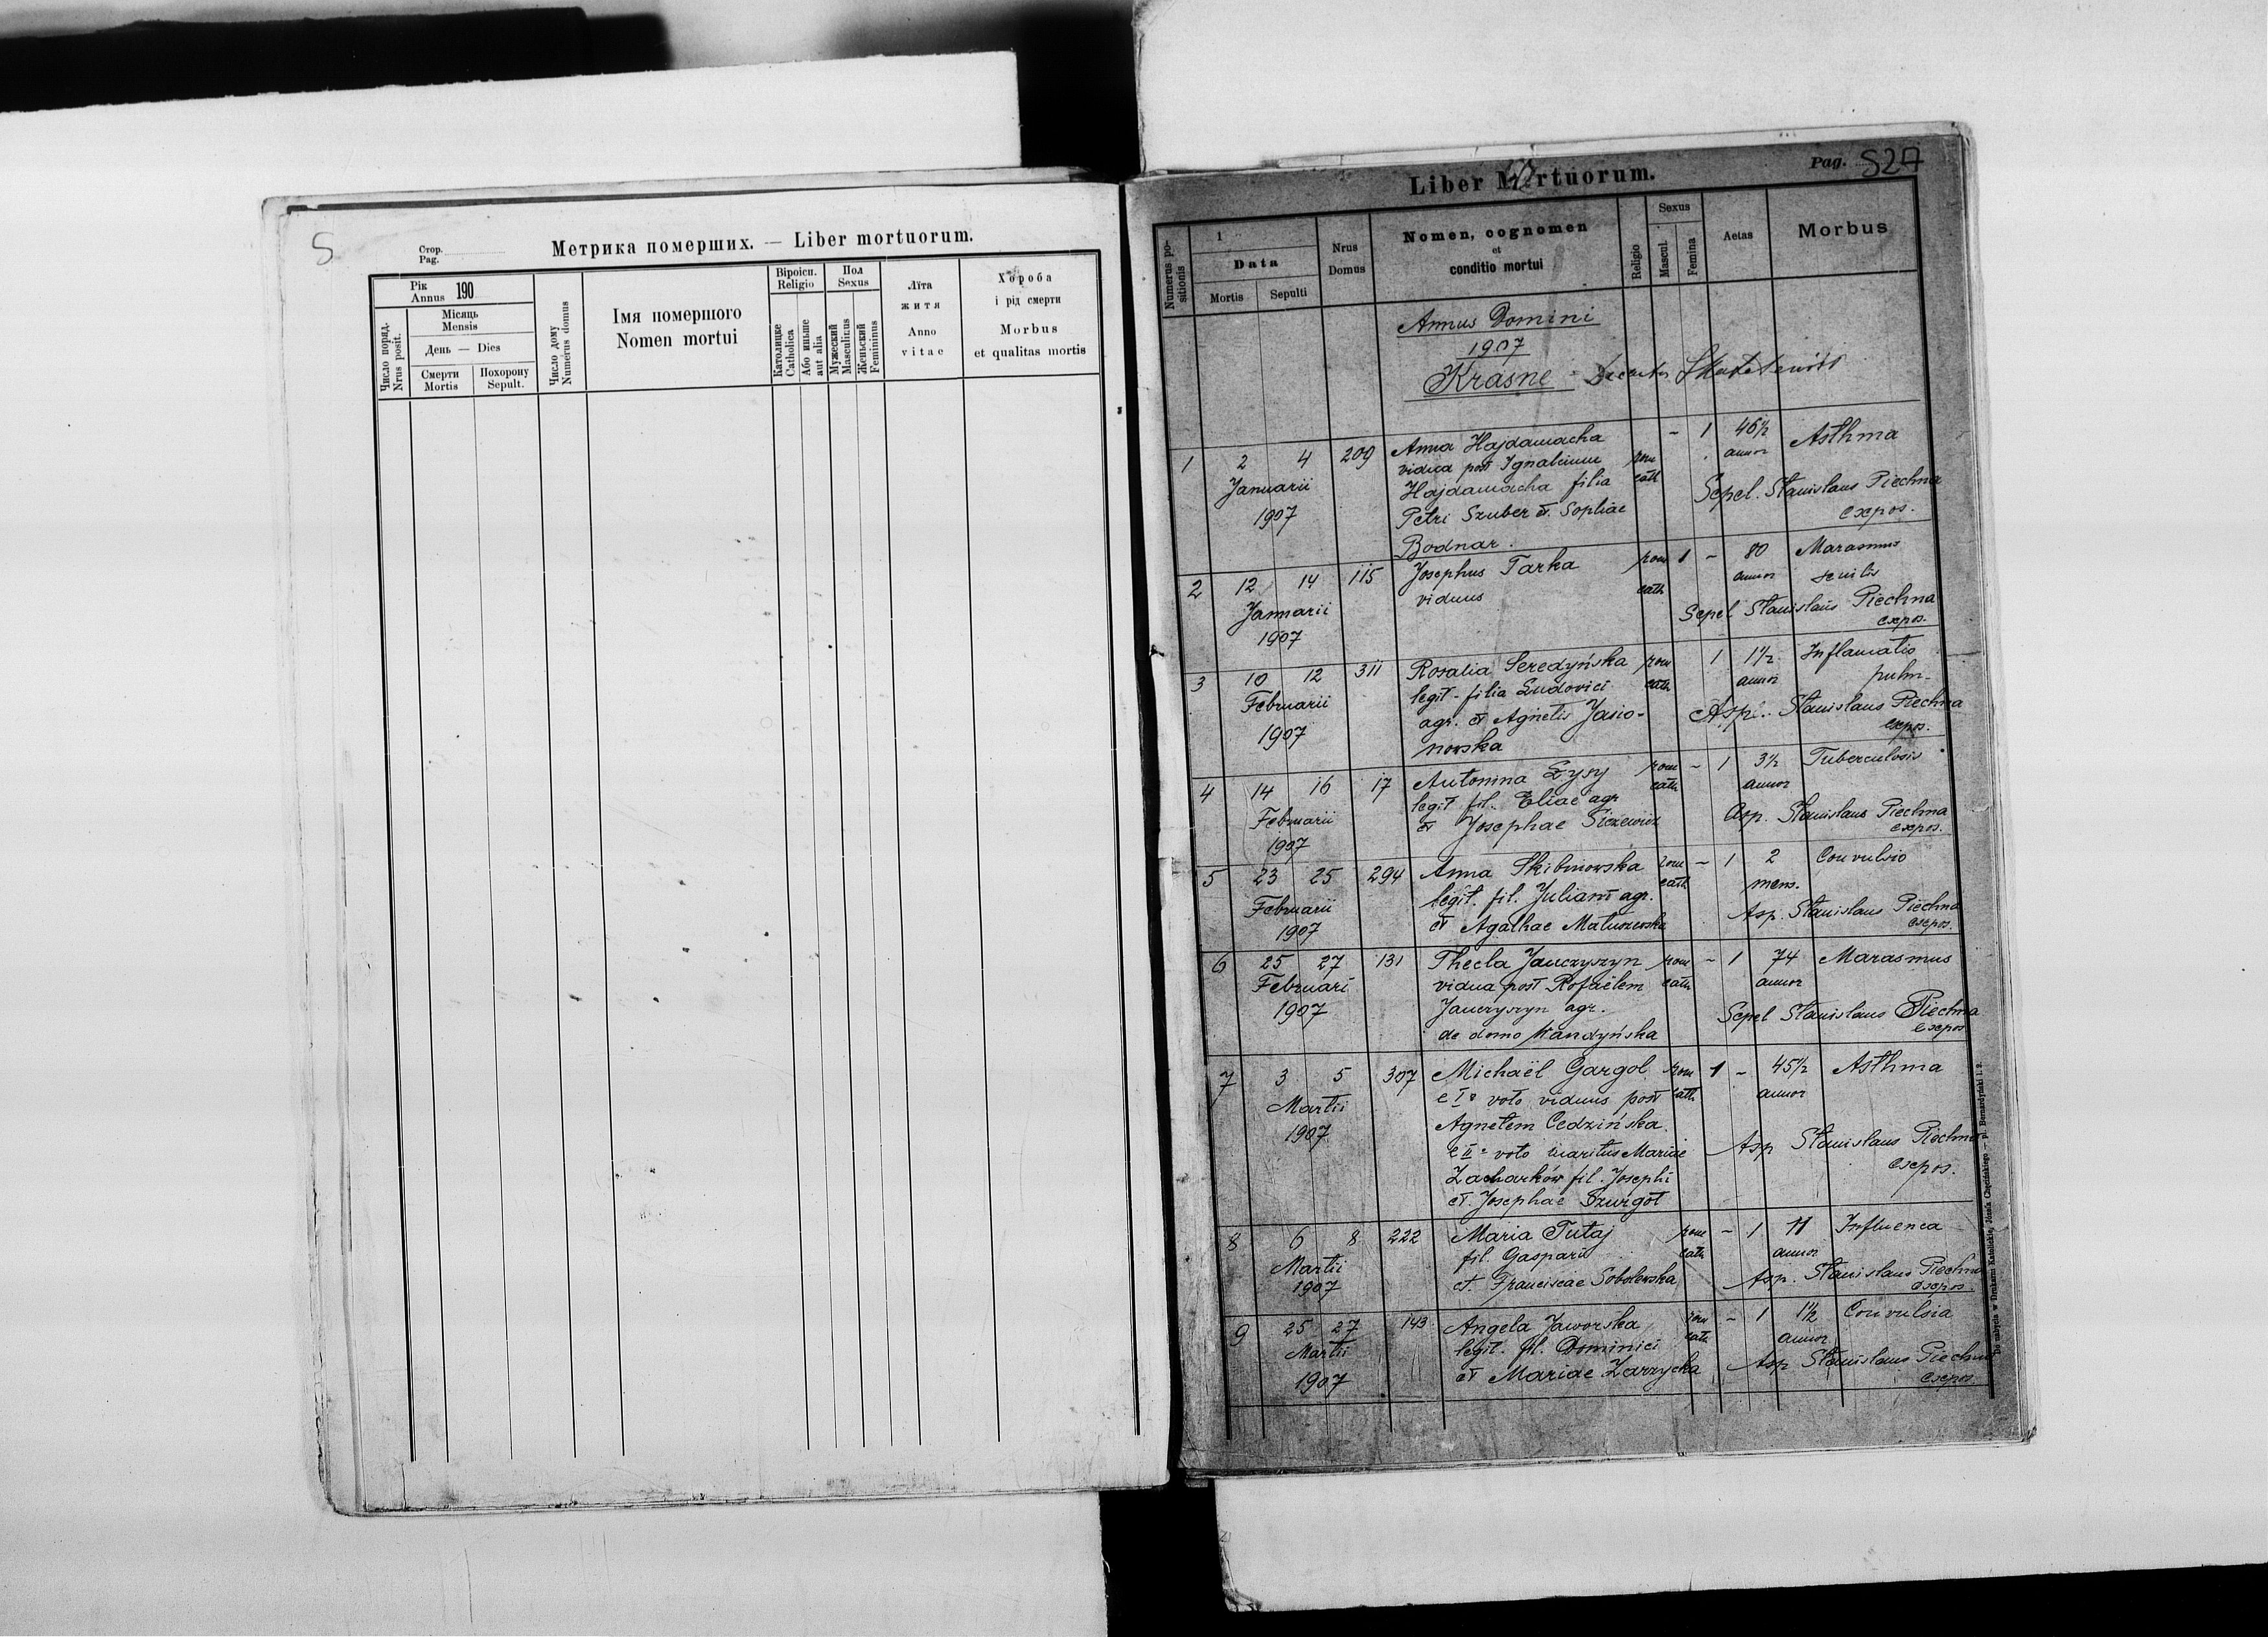 S
Стор.
Pag.
Метрика померших. — Liber mortuorum.
Рік
Annus 190
Місяць
Mensis
День — Dies
Смерти
Mortis
Похорону
Sepult.
Число поряд.
Nrus posit.
Число дому
Numerus domus
Імя помершого
Nomen mortui
Віроісп.
Religio
Католицке
Catholica
Або иньше
aut alia
Пол
Sexus
Мужеский
Masculinus
Женьский
Femininus
Лїта
житя
Anno
vitae
Хороба
і рід смерти
Morbus
et qualitas mortis
Liber Mortuorum.
Pag. 527
Numerus positionis
1
Data
Mortis Sepulti
Nrus
Domus
Nomen, cognomen
et
conditio mortui
Religio
Sexus
Mascul.
Femina
Aetas
Morbus
Annus Domini
1907
Krasne
1 2 4 209 Anna Hajdamacha rom - 1 46 1/2 Asthma
Januarii vidua post Ignatium cath annor
1907 Hajdamacha filia Sepel. Stanislaus Piechna
Petri Szuber et Sophiae expos.
Bodnar.
2 12 14 115 Josephus Tarka rom 1 - 80 Marasmus
Januarii viduus cath annor senilis
1907 Sepel Stanislaus Piechna
expos.
3 10 12 311 Rosalia Seredyńska rom 1 1 1/2 Inflamatio
Februarii legit. filia Ludovici cath annor pulm.
1907 agr. et Agnetis Jasio- Asp. Stanislaus Piechna
nowska expos.
4 14 16 17 Antonina Łysy rom - 1 3 1/2 Tuberculosis
Februarii legit fil. Eliae agr cath annor
1907 et Josephae Asp. Stanislaus Piechna
expos.
5 23 25 294 Anna Skibniowska rom - 1 2 Convulsio
Februarii legit. fil. Juliani agr. cath mens.
1907 et Agathae Matuszewska Asp. Stanislaus Piechna
expos.
6 25 27 131 Thecla Janczyszyn rom - 1 74 Marasmus
Februari vidua post Rafaëlem cath annor
1907 Janczyszyn agr. Sepel Stanislaus Piechna
de domo expos
7 3 5 307 Michaël Gargol rom 1 - 45 1/2 Asthma
Martii e I° voto viduus post cath annor
1907 Agnetem Cedzińska. Asp Stanislaus Piechna
e II° voto maritus Mariae expos.
Zacharków fil. Josephi
et. Josephae Szurgot
8 6 8 222 Maria Tutaj rom - 1 11 Influenca
Martii fil. Gasparii cath annor
1907 et. Franciscae Sobolewska Asp. Stanislaus Piechna
expos.
9 25 27 143 Angela Jaworska rom - 1 1 1/2 Convulsia
Martii legit. fil. Dominici cath annor
1907 et Mariae Zarzycka Asp Stanislaus Piechna
expos.
Do nabycia w Drukarni Katolickiej Józefa Chęcińskiego — pl. Bernardyński l. 2.